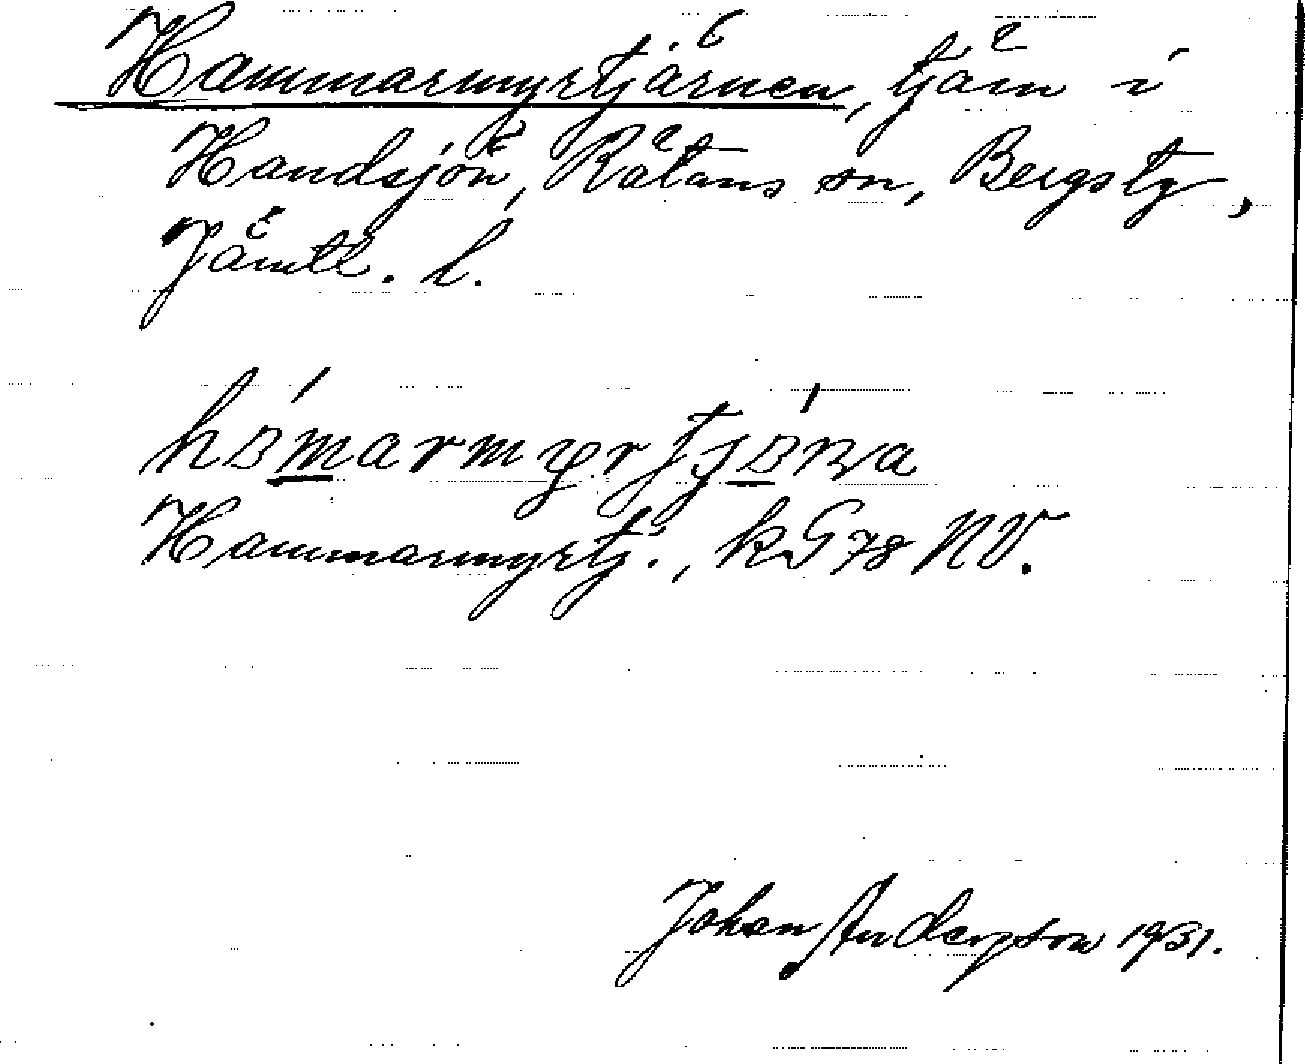 Hammarmyrtjärnen, tjärn i
Handsjön, Rätans sn, Bergs tg,
Jämtl. l.
Hammarmyrtj., kG 78 NV.
Johan Anderson 1931.